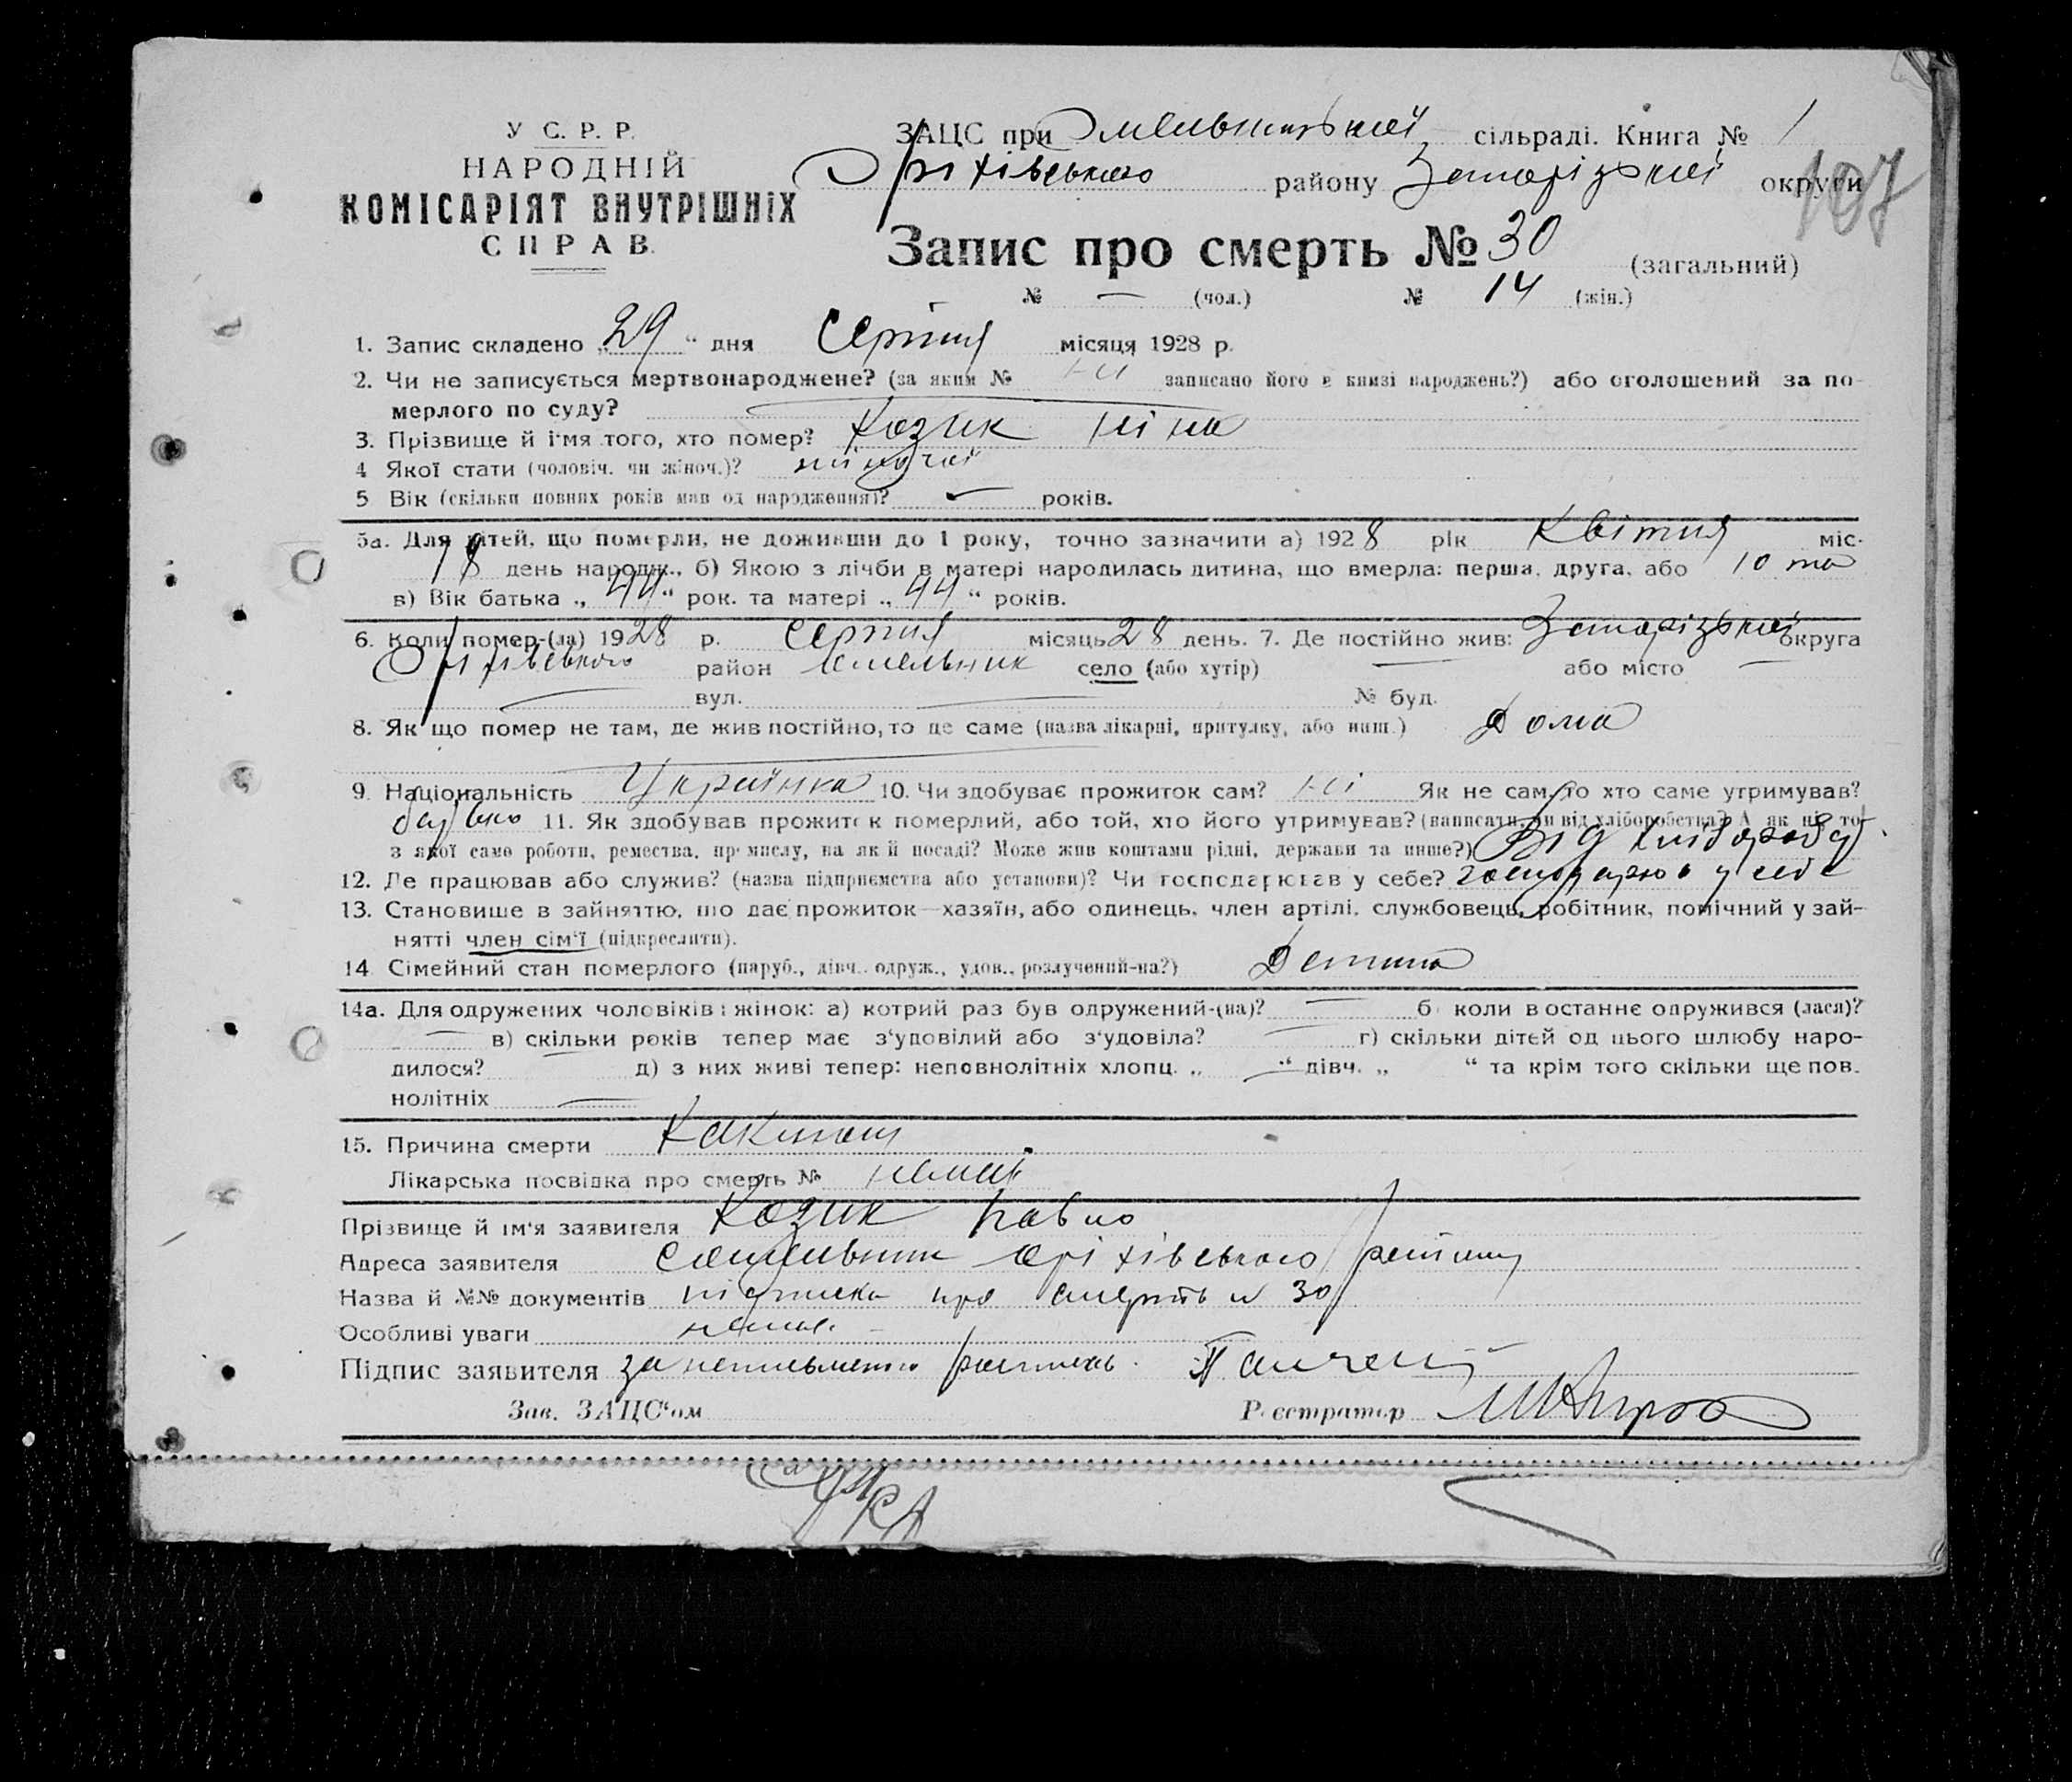 У С. Р. Р.
НАРОДНІЙ
КОМІСАРІЯТ ВНУТРІШНІХ
СПРАВ.
ЗАЦС при Омельницької сільраді. Книга № 1
Оріхівського району Запорізької округи
107
Запис про смерть № 30 (загальний)
№ — (чол.) № 14 (жін.)
1. Запис складено „29“ дня Серпня місяця 1928 р.
2. Чи не записується мертвонароджене? (за яким № ні записано його в книзі народжень?) або оголошений за по-
мерлого по суду?
3. Прізвище й ім'я того, хто помер? Козик Ніна
4 Якої стати (чоловіч. чи жіноч.)? жіночої
5 Вік (скільки повних років мав од народження)? — років.
5а. Для дітей, що померли, не доживши до 1 року, точно зазначити а) 1928 рік Квітня міс.
18 день народж., б) Якою з лічби в матері народилась дитина, що вмерла: перша, друга, або 10 та
в) Вік батька „44“ рок. та матері „44“ років.
6. Коли помер-(ла) 1928 р. Серпня місяць 28 день. 7. Де постійно жив: Запорізької округа
Оріхівського район Омельник село (або хутір) — або місто —
— вул. — № буд.
8. Як що помер не там, де жив постійно, то де саме (назва лікарні, притулку, або инш.) Дома
9. Національність Українка 10. Чи здобуває прожиток сам? ні Як не сам, то хто саме утримував?
батько 11. Як здобував прожиток померлий, або той, хто його утримував? (написати чи від хліборобства? А як ні, то
з якої саме роботи, ремества, промислу, на якій посаді? Може жив коштами рідні, держави та инше?) Від хліборобст
12. Де працював або служив? (назва підприємства або установи)? Чи господарював у себе? господарював у себе
13. Становище в зайняттю, що дає прожиток—хазяїн, або одинець, член артілі, службовець, робітник, помічний у зай-
нятті член сім'ї (підкреслити).
14 Сімейний стан померлого (паруб., дівч., одруж., удов., розлучений-на?) Детина
14а. Для одружених чоловіків і жінок: а) котрий раз був одружений-(на)? — б) коли в останнє одружився (лася)?
— в) скільки років тепер має з'удовілий або з'удовіла? — г) скільки дітей од цього шлюбу наро-
дилося? — д) з них живі тепер: неповнолітніх хлопц. „ — “ дівч. „ “ та крім того скільки ще пов.
нолітніх —
15. Причина смерти Каклюш
Лікарська посвідка про смерть № немає
Прізвище й ім'я заявителя Козик Павло
Адреса заявителя с. Омельник Оріхівського району
Назва й №№ документів підписка про смерть № 30
Особливі уваги немає
Підпис заявителя за неписьменого розписавсь
Зав. ЗАЦС'ом Реєстратор